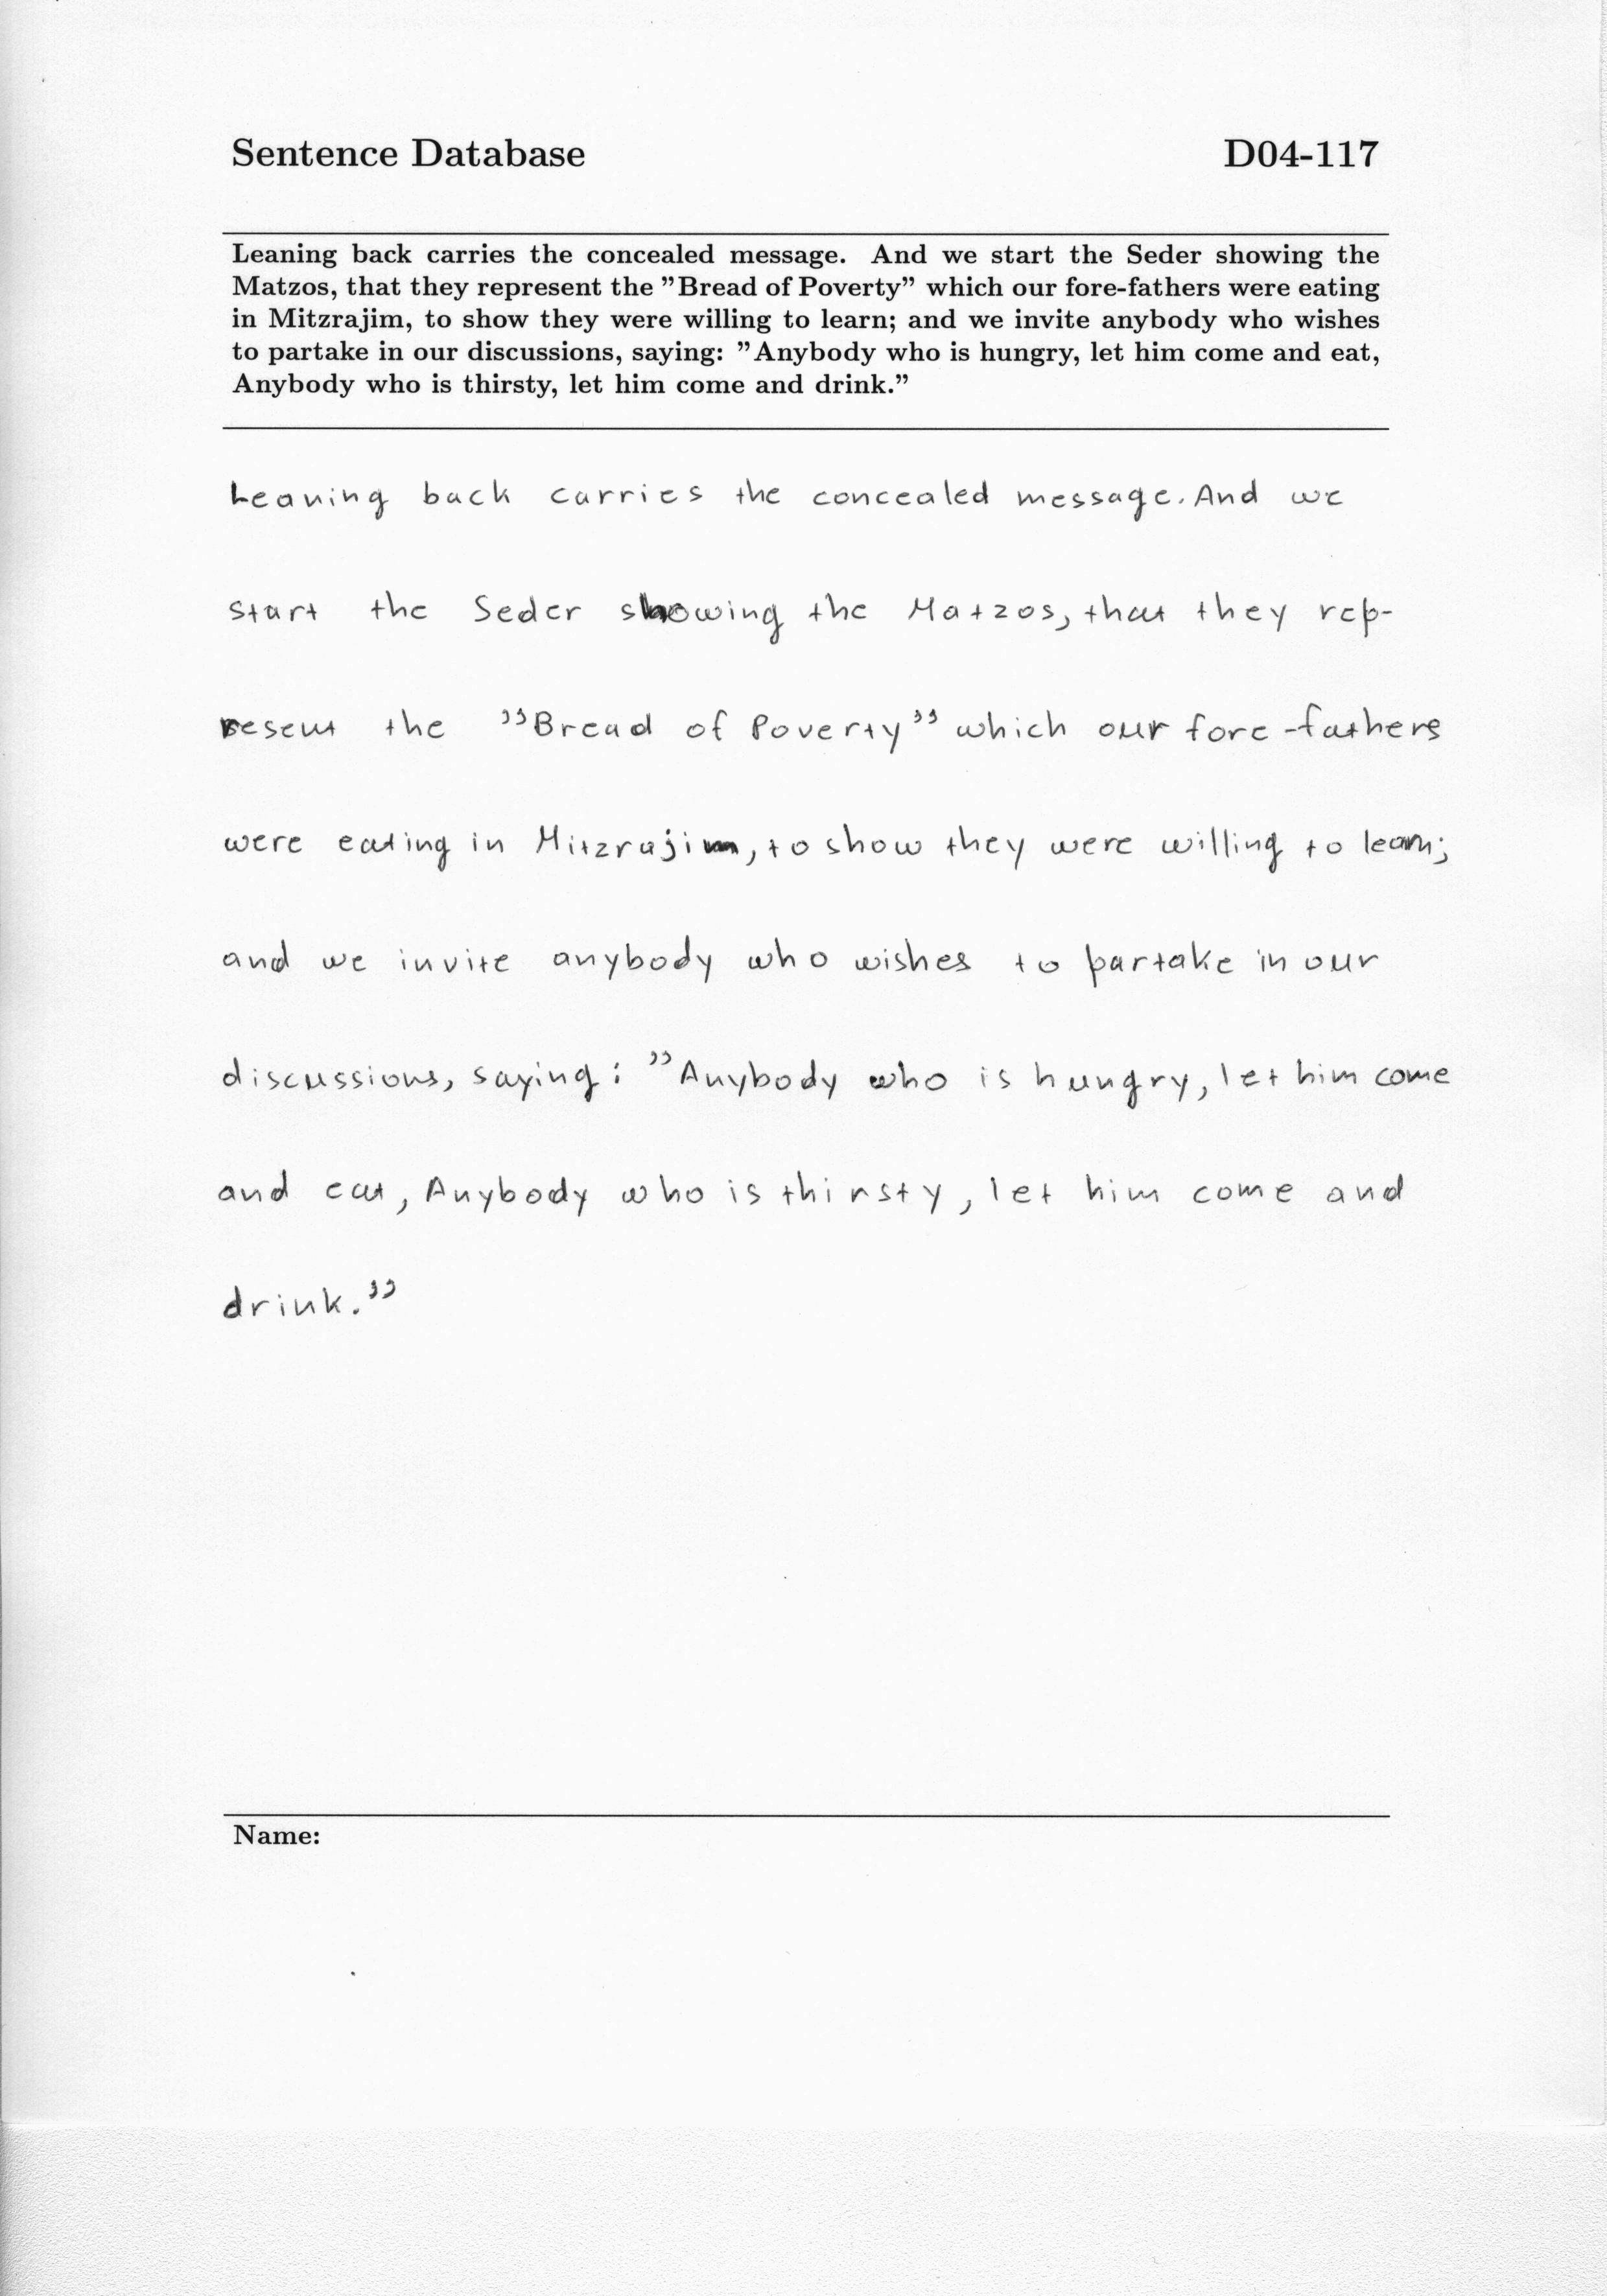 Sentence Database D04-117
Leaning back carries the concealed message. And we start the Seder showing the
Matzos, that they represent the ”Bread of Poverty” which our fore-fathers were eating
in Mitzrajim, to show they were willing to learn; and we invite anybody who wishes
to partake in our discussions, saying: ”Anybody who is hungry, let him come and eat,
Anybody who is thirsty, let him come and drink.”
Leaning back carries the concealed message. And we
start the Seder showing the Matzos, that they rep-
resent the ”Bread of Poverty” which our fore-fathers
were eating in Mitzrajim, to show they were willing to learn;
and we invite anybody who wishes to partake in our
discussions, saying: ”Anybody who is hungry, let him come
and eat, Anybody who is thirsty, let him come and
drink.”
Name: